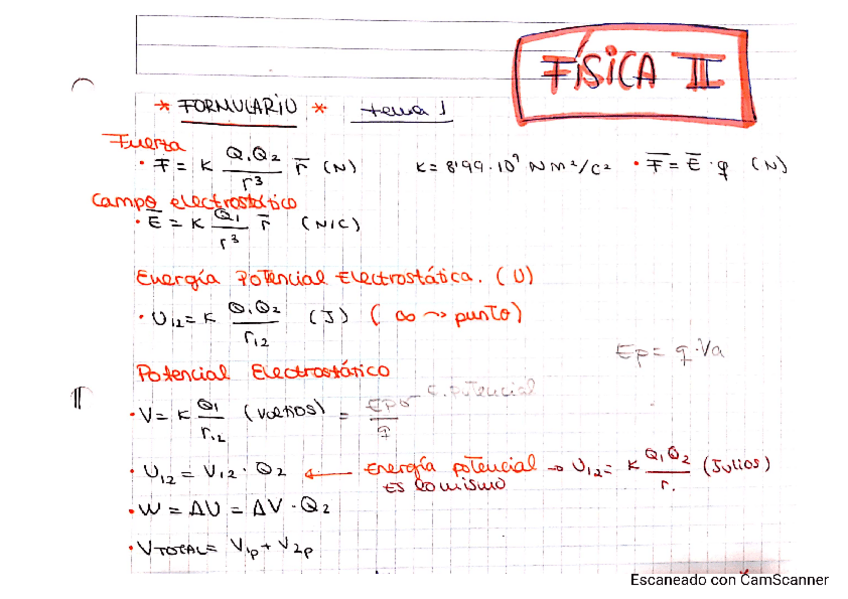 FÍSICA II
* FORMULARIO * tema 1
Fuerza
• F̅ = K Q₁Q₂/r³ r̅ (N) K = 8'99·10⁹ N m²/C² • F̅ = E̅ · q (N)
Campo electrostático
• E̅ = K Q₁/r³ r̅ (N/C)
Energía Potencial Electrostática. (U)
• U₁₂ = K Q₁Q₂/r₁₂ (J) (∞ → punto)
Ep = q·Va
Potencial Electrostático
• V = K Q₁/r₁₂ (Voltios) = Epo/q E. potencial
• U₁₂ = V₁₂ · Q₂ ← Energía potencial → U₁₂ = K Q₁Q₂/r. (Julios)
Es lo mismo
• W = ΔU = ΔV · Q₂
• VTOTAL = V₁p + V₂p
Escaneado con CamScanner